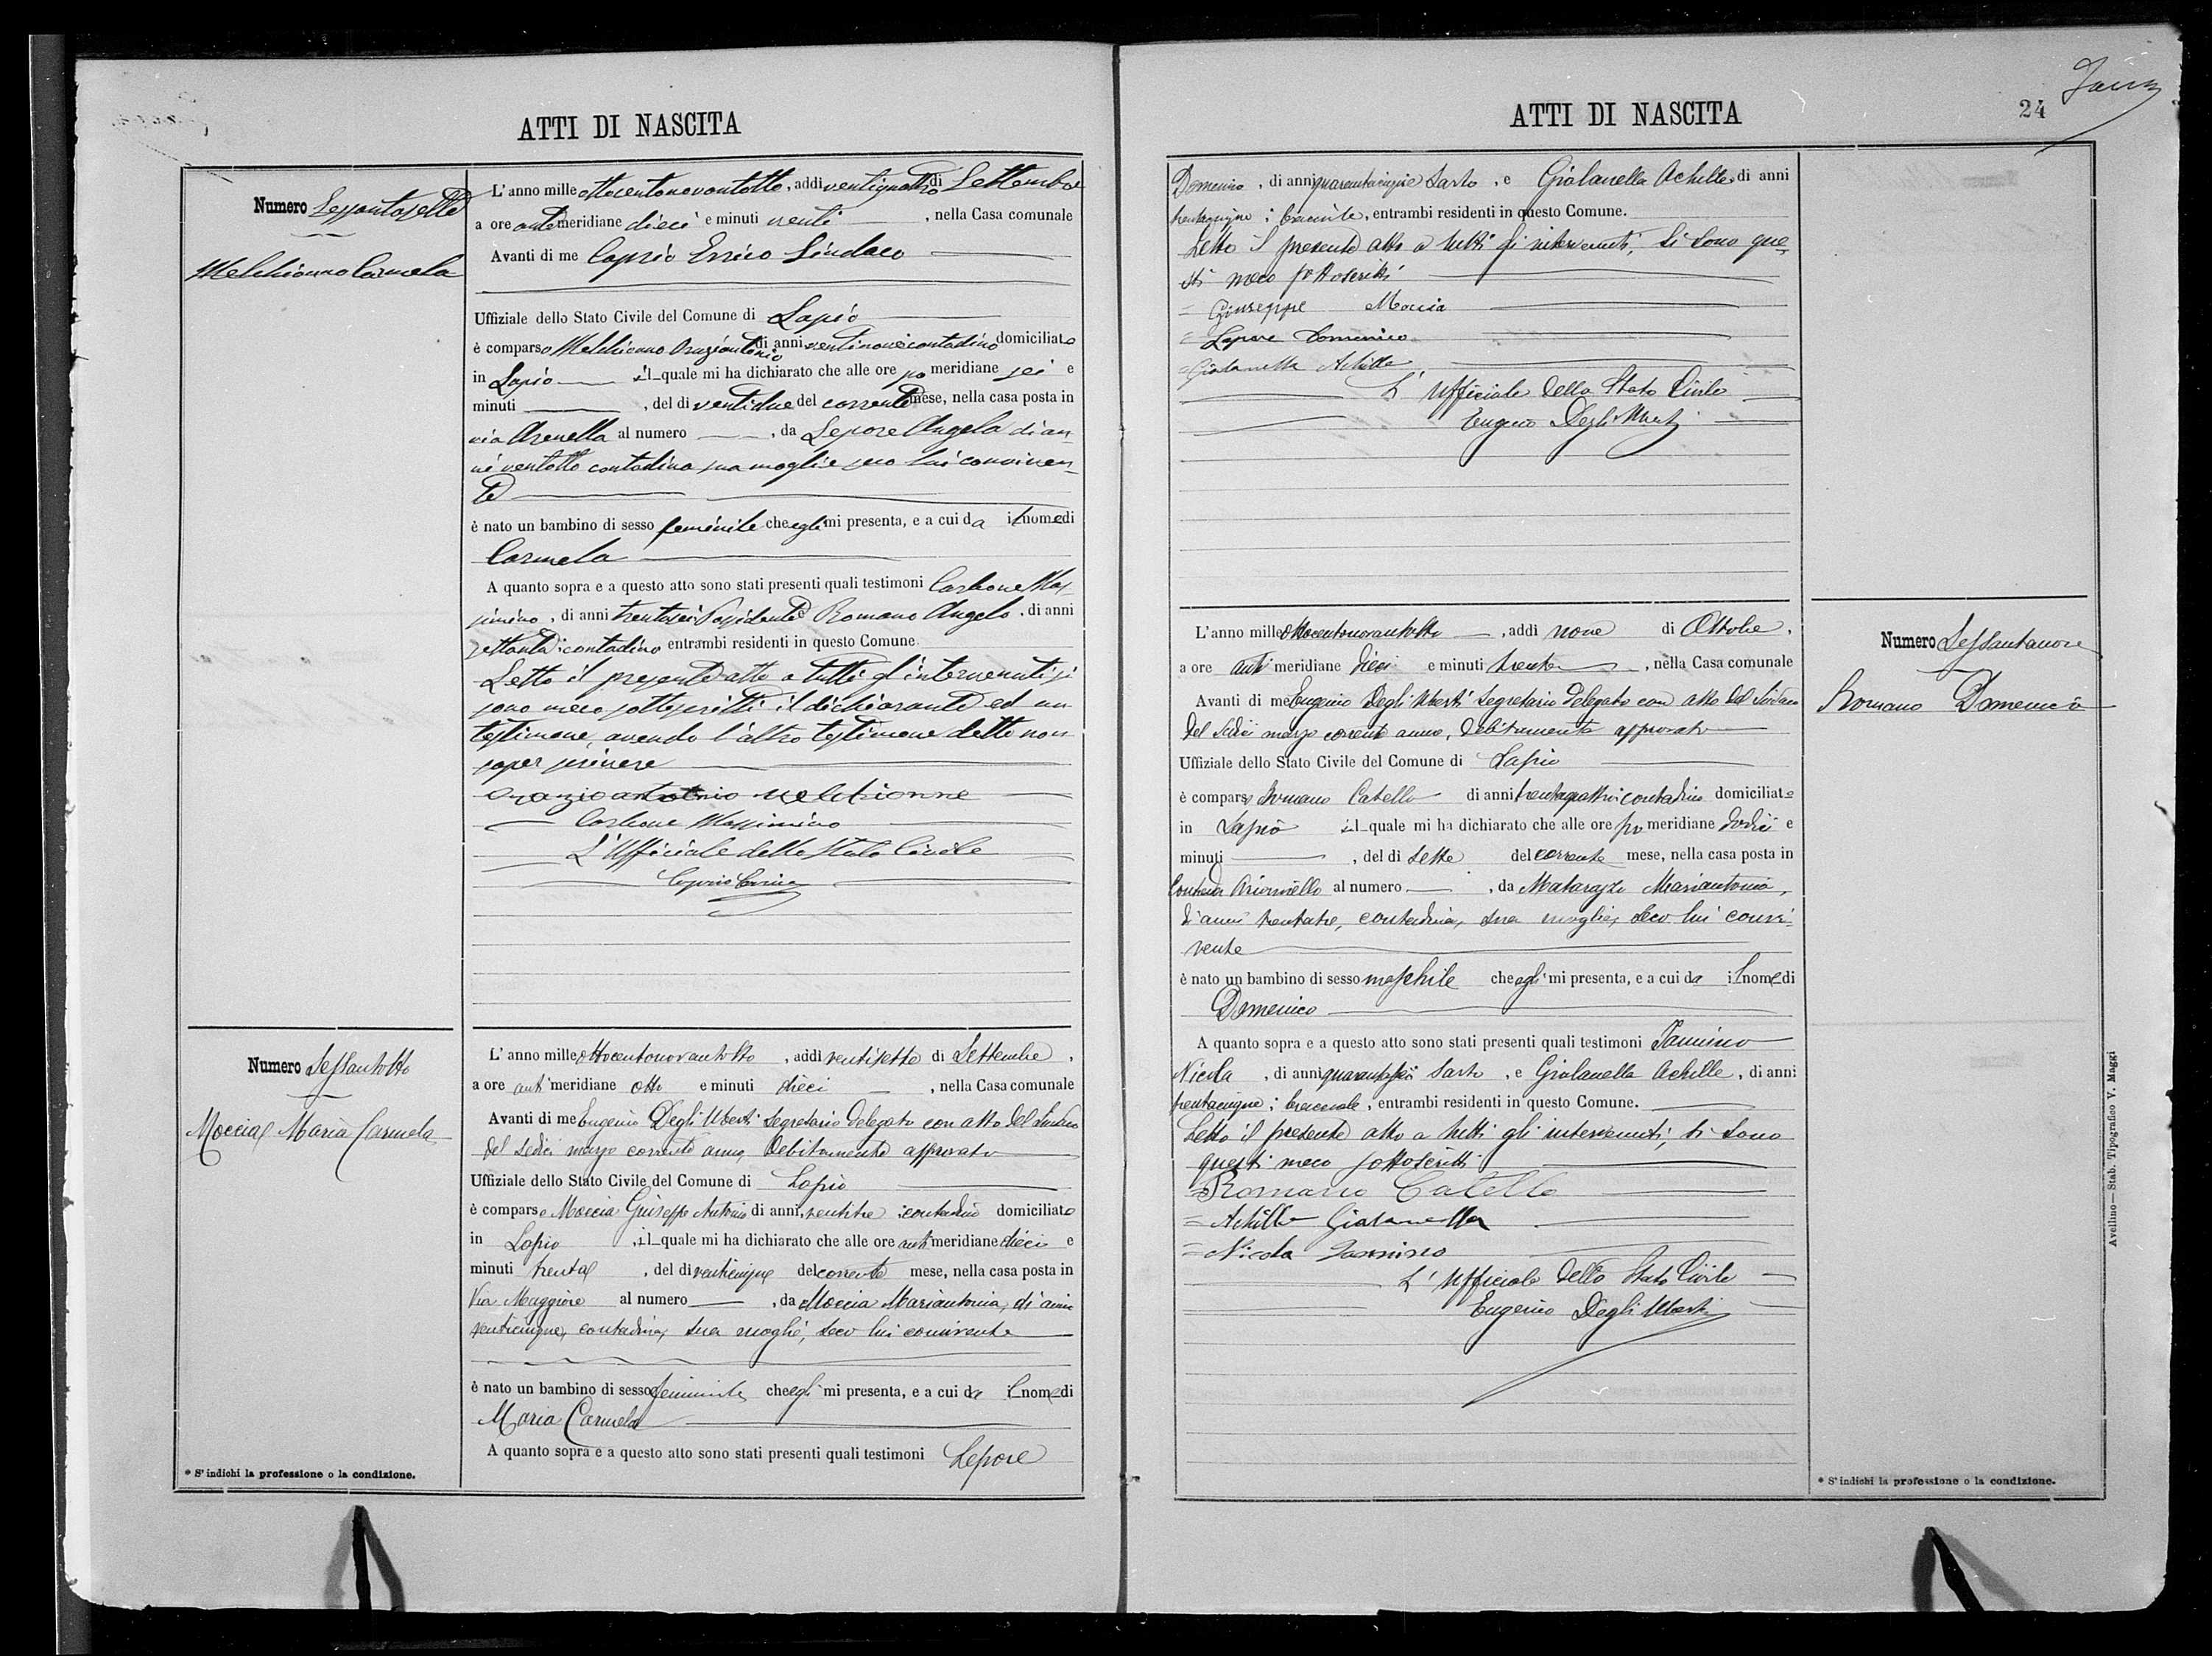 ATTI DI NASCITA
Numero Sessantasette
Melchionno Carmela
L'anno mille ottocentonovantotto, addi ventiquattro di Settembre
a ore anti meridiane dieci e minuti venti, nella Casa comunale
Avanti di me Caprio Errico Sindaco
Uffiziale dello Stato Civile del Comune di Lapio
è comparso Melchionno Oraziantonio di anni ventinove contadino domiciliato
in Lapio il quale mi ha dichiarato che alle ore po meridiane sei e
minuti , del di ventidue del corrente mese, nella casa posta in
via Arenella al numero , da Lepore Angela di an-
ni ventotto contadina sua moglie seco lui conviven-
te
è nato un bambino di sesso feminile che egli mi presenta, e a cui da il nome di
Carmela
A quanto sopra e a questo atto sono stati presenti quali testimoni Carbone Mas-
simino, di anni trentasei Possidente Romano Angelo, di anni
settanta contadino entrambi residenti in questo Comune.
Letto il presente atto a tutti gl'intervenuti si
sono meco sottoscritti il dichiarante ed un
testimone, avendo l'altro testimone detto non
saper scrivere
Orazio antonio Melchionne
Carbone Massimino
L'Ufficiale dello Stato Civile
Caprio Errico
Numero Sessantotto
Moccia Maria Carmela
L'anno mille ottocentonovantotto, addi ventisette di Settembre,
a ore anti meridiane otto e minuti dieci, nella Casa comunale
Avanti di me Eugenio Degli Uberti Segretario delegato con atto del Sindaco
del sedici marzo corrente anno, debitamente approvato
Uffiziale dello Stato Civile del Comune di Lapio
è comparso Moccia Giuseppe Antonio di anni ventitre contadino domiciliato
in Lapio, il quale mi ha dichiarato che alle ore anti meridiane dieci e
minuti trenta, del di venticinque del corrente mese, nella casa posta in
Via Maggiore al numero , da Moccia Mariantonia, di anni
venticinque, contadina, sua moglie, seco lui convivente
è nato un bambino di sesso feminile che egli mi presenta, e a cui da il nome di
Maria Carmela
A quanto sopra e a questo atto sono stati presenti quali testimoni Lepore
* S'indichi la professione o la condizione.
ATTI DI NASCITA
24
Domenico, di anni quarantacinque Sarto, e Giolanella Achille, di anni
trentacinque, bracciale, entrambi residenti in questo Comune.
Letto il presente atto a tutti gli intervenuti, si sono que-
sti meco sottoscritti
= Giuseppe Moccia
= Lepore Domenico
= Giolanella Achille
L'Ufficiale dello Stato Civile
Eugenio Degli Uberti
L'anno mille ottocentonovantotto, addi nove di Ottobre,
a ore anti meridiane dieci e minuti trenta, nella Casa comunale
Avanti di me Eugenio Degli Uberti Segretario delegato con atto del Sindaco
del sedici marzo corrente anno, debitamente approvato
Uffiziale dello Stato Civile del Comune di Lapio
è comparso Romano Catello di anni trentaquattro contadino domiciliato
in Lapio il quale mi ha dichiarato che alle ore po meridiane dodici e
minuti , del di sette del corrente mese, nella casa posta in
Contrada al numero , da Matarazzo Mariantonia,
di anni trentatre, contadina, sua moglie, seco lui convi-
vente
è nato un bambino di sesso maschile che egli mi presenta, e a cui da il nome di
Domenico
A quanto sopra e a questo atto sono stati presenti quali testimoni Iannino
Nicola, di anni quarantasei Sarto, e Giolanella Achille, di anni
trentacinque, bracciale, entrambi residenti in questo Comune.
Letto il presente atto a tutti gli intervenuti, si sono
questi meco sottoscritti
= Romano Catello
= Achille Giolanella
= Nicola Iannino
L'Ufficiale dello Stato Civile
Eugenio Degli Uberti
Numero Sessantanove
Romano Domenico
* S'indichi la professione o la condizione.
Avellino — Stab. Tipografico V. Maggi